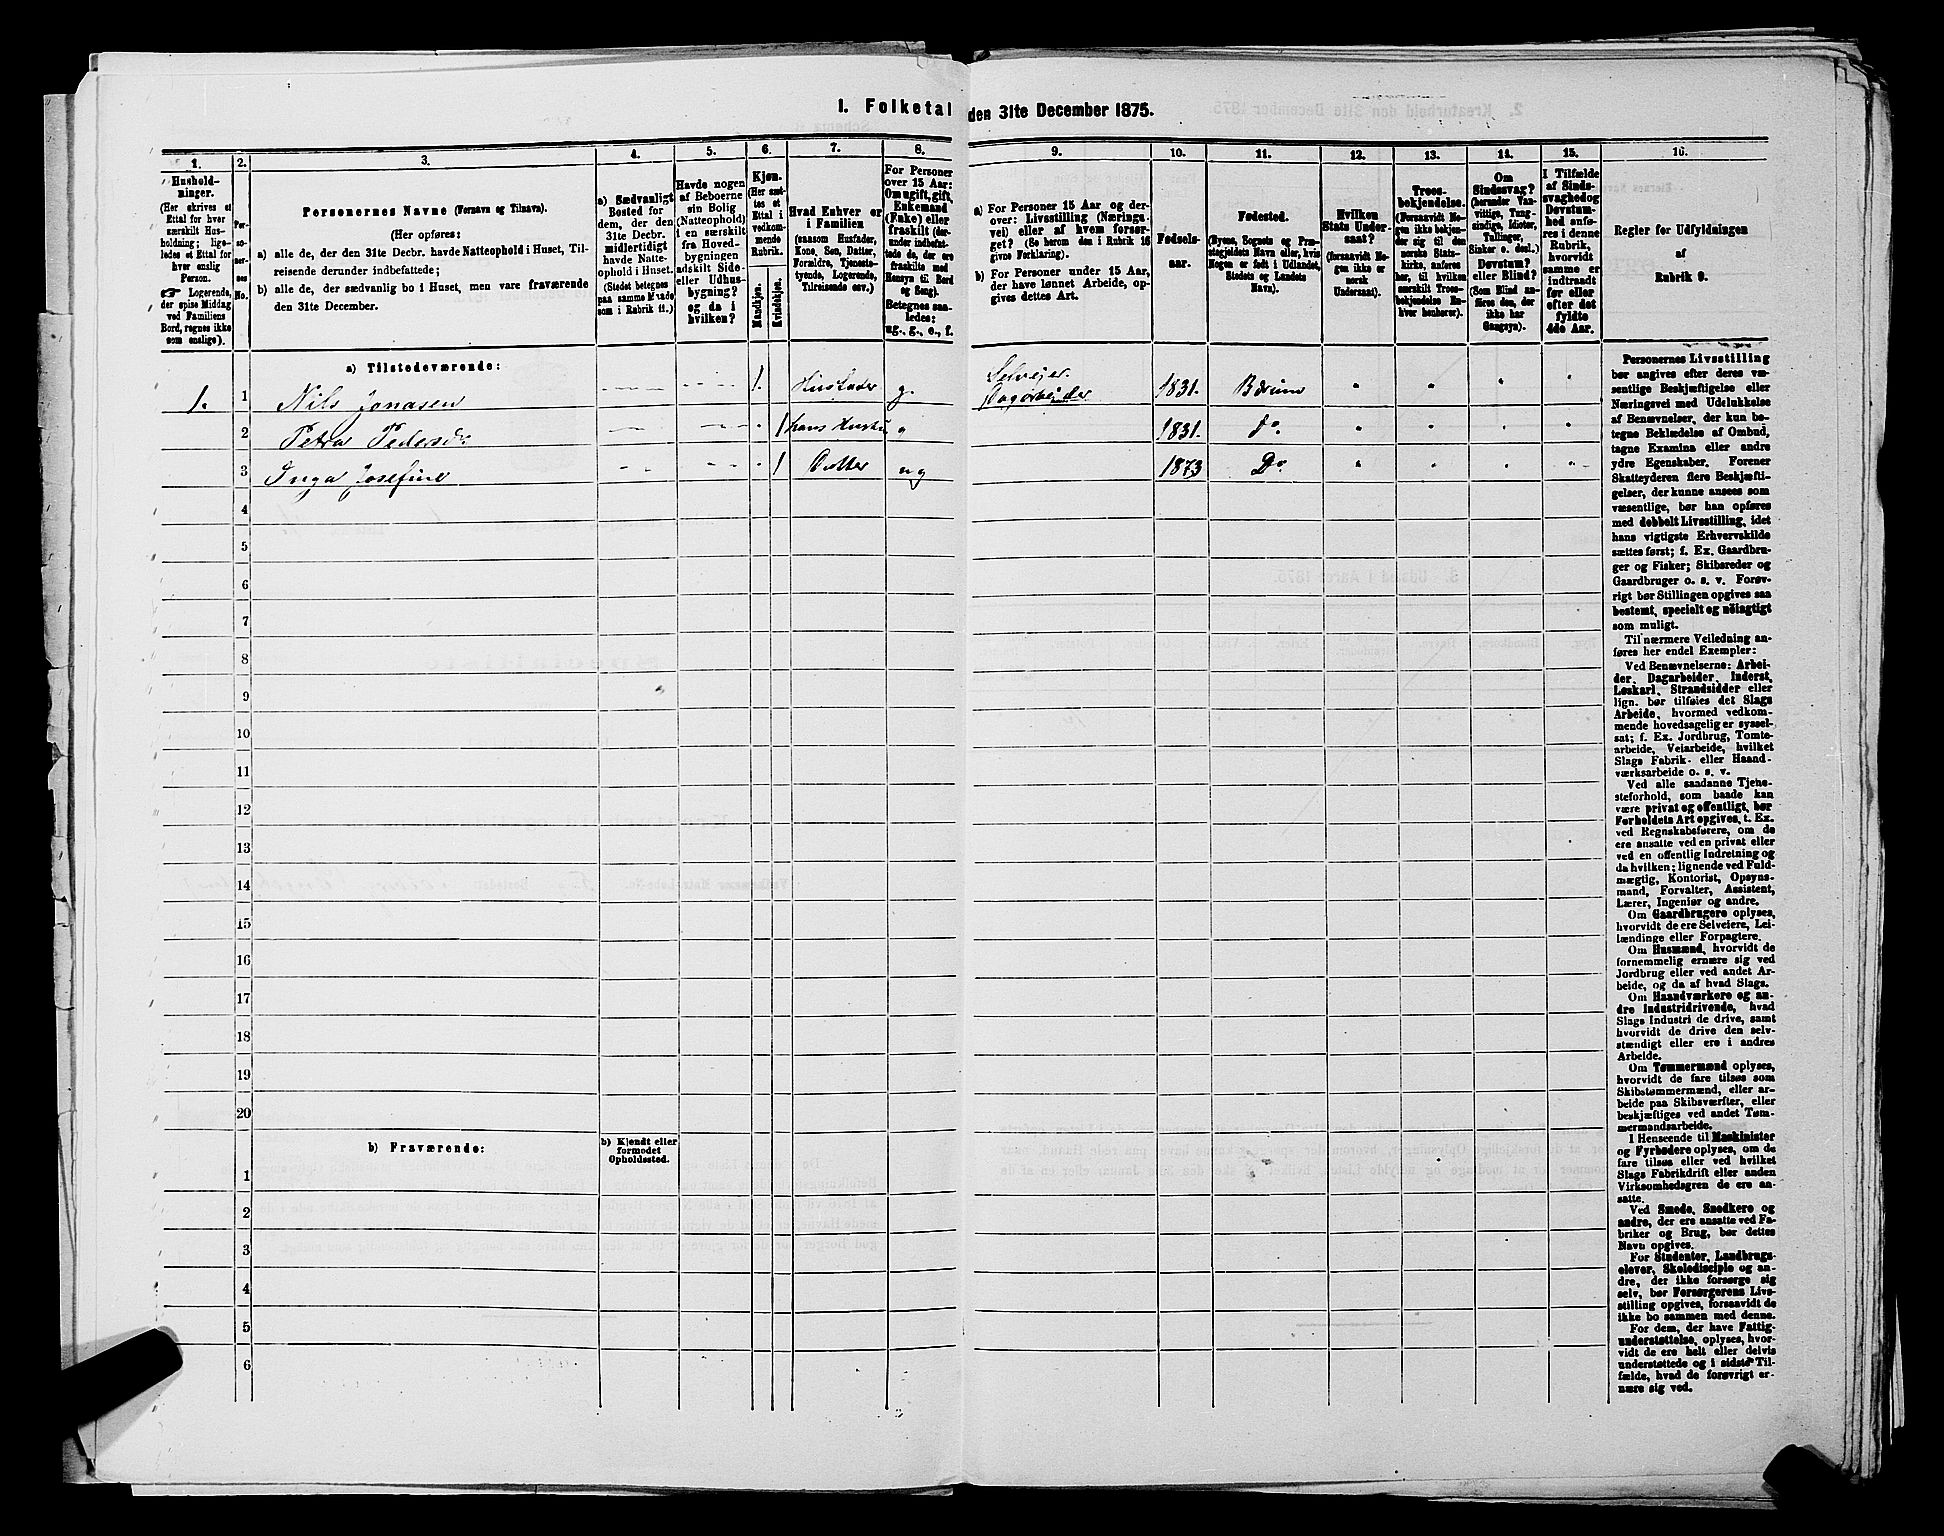 I. Folketal den 31te December 1875.
1.
2.
3.
4.
5.
6.
7.
8.
9.
10.
11.
12.
13.
14.
15.
16.
Hushold-
ninger.
(Her skrives et
Ettal for hver
særskilt Hus-
holdning; lige-
ledes et Ettal for
hver enslig
Person.
☞ Logerende,
der spise Middag
ved Familiens
Bord, regnes ikke
som enslige).
Per-
so-
ner-
nes
No.
Personernes Navne (Fornavn og Tilnavn).
(Her opføres:
a) alle de, der den 31te Decbr. havde Natteophold i Huset, Til-
reisende derunder indbefattede;
b) alle de, der sædvanlig bo i Huset, men vare fraværende
den 31te December.
a) Sædvanligt
Bosted for
dem, der den
31te Decbr.
midlertidigt
havde Natte-
ophold i Huset.
(Stedet betegnes
paa samme Maade
som i Rubrik 11.)
Havde nogen
af Beboerne
sin Bolig
(Natteophold)
i en særskilt
fra Hoved-
bygningen
adskilt Side-
eller Udhus-
bygning?
og da i
hvilken?
Kjøn.
(Her sæt-
tes et
Ettal i
vedkom-
mende
Rubrik.
Mandkjøn.
Kvindekjøn.
Hvad Enhver er
i Familien
(saasom Husfader,
Kone, Søn, Datter,
Forældre, Tjeneste-
tyende, Logerende,
Tilreisende osv.)
For Personer
over 15 Aar:
Om ugift, gift,
Enkemand
(Enke) eller
fraskilt (der-
under indbefat-
tede de, der ere
fraskilte med
Hensyn til Bord
og Seng).
Betegnes saa-
ledes:
ug., g., e., f.
a) For Personer 15 Aar og der-
over: Livsstilling (Nærings-
vei) eller af hvem forsør-
get? (Se herom den i Rubrik 16
givne Forklaring).
b) For Personer under 15 Aar,
der have lønnet Arbeide, op-
gives dettes Art.
Fødsels-
aar.
Fødested.
(Byens, Sognets og Præ-
stegjeldets Navn eller, hvis
Nogen er født i Udlandet,
Stedets og Landets
Navn).
Hvilken
Stats Under-
saat?
(forsaavidt No-
gen ikke er
norsk
Undersaat).
Troes-
bekjendelse.
(Forsaavidt No-
gen ikke bekjen-
der sig til den
norske Stats-
kirke, anføres
her, til hvilken
særskilt Troes-
bekjendelse En-
hver henhører).
Om
Sindssvag?
(herunder Van-
vittige, Tung-
sindige, Idioter,
Tullinger,
Sinker o. desl.).
Døvstum?
eller Blind?
(Som Blind an-
føres den, der
ikke har
Gangsyn).
I Tilfælde
af Sinds-
svaghed og
Døvstum-
hed anfø-
res i denne
Rubrik,
hvorvidt
samme er
indtraadt
før eller
efter det
fyldte
4de Aar.
Regler for Udfyldningen
af
Rubrik 9.
a) Tilstedeværende:
1. 1 Nils Jonasen 1. Husfader g. Selvejer Dagarbeider 1831. Bærum
2 Petra Pedersdr 1 hans Hustru 1831. do.
3 Inga Josefine 1 Datter ug 1873 Do
4
5
6
7
8
9
10
11
12
13
14
15
16
17
18
19
20
b) Fraværende:
b) Kjendt eller
formodet
Opholdssted.
1
2
3
4
5
6
Personernes Livsstilling
bør angives efter deres væ-
sentlige Beskjæftigelse eller
Næringsvei med Udelukkelse
af Benævnelser, der kun be-
tegne Beklædelse af Ombud,
tagne Examina eller andre
ydre Egenskaber. Forener
Skatteyderen flere Beskjæfti-
gelser, der kunne ansees som
væsentlige, bør han opføres
med dobbelt Livsstilling, idet
hans vigtigste Erhvervskilde
sættes først; f. Ex. Gaardbru-
ger og Fisker; Skibsreder og
Gaardbruger o. s. v. Forøv-
rigt bør Stillingen opgives saa
bestemt, specielt og nöiagtigt
som muligt.
Til nærmere Veiledning an-
føres her endel Exempler:
Ved Benævnelserne: Arbei-
der, Dagarbeider, Inderst,
Løskarl, Strandsidder eller
lign. bør tilføies det Slags
Arbeide, hvormed vedkom-
mende hovedsagelig er syssel-
sat; f. Ex. Jordbrug, Tomte-
arbeide, Veiarbeide, hvilket
Slags Fabrik- eller Haand-
værksarbeide o. s. v.
Ved alle saadanne Tjene-
steforhold, som baade kan
være privat og offentligt, bør
Forholdets Art opgives, t. Ex.
ved Regnskabsførere, om de
ere ansatte ved en privat eller
ved en offentlig Indretning og
da hvilken; lignende ved Fuld-
mægtig, Kontorist, Opsyns-
mand, Forvalter, Assistent,
Lærer, Ingeniør og andre.
Om Gaardbrugere oplyses,
hvorvidt de ere Selveiere, Lei-
lændinge eller Forpagtere.
Om Husmænd, hvorvidt de
fornemmelig ernære sig ved
Jordbrug eller ved andet Ar-
beide, og da af hvad Slags.
Om Haandværkere og an-
dre Industridrivende, hvad
Slags Industri de drive, samt
hvorvidt de drive den selv-
stændigt eller ere i andres
Arbeide.
Om Tømmermænd oplyses,
hvorvidt de fare tilsøs som
Skibstømmermænd, eller ar-
beide paa Skibsværfter, eller
beskjæftiges ved andet Tøm-
mermandsarbeide.
I Henseende til Maskinister
og Fyrbødere oplyses, om de
fare tilsøs eller ved hvilket
Slags Fabrikdrift eller anden
Virksomhedsgren de ere an-
satte.
Ved Smede, Snedkere og
andre, der ere ansatte ved Fa-
briker og Brug, bør dettes
Navn opgives.
For Studenter, Landbrugs-
elever, Skoledisciple og an-
dre, der ikke forsørge sig
selv, bør Forsørgerens Livs-
stilling opgives, forsaavidt de
ikke bo sammen med denne.
For dem, der have Fattig-
understøttelse, oplyses, hvor-
vidt de ere helt eller delvis
understøttede og i sidste Til-
fælde, hvad de forøvrigt er-
nære sig ved.